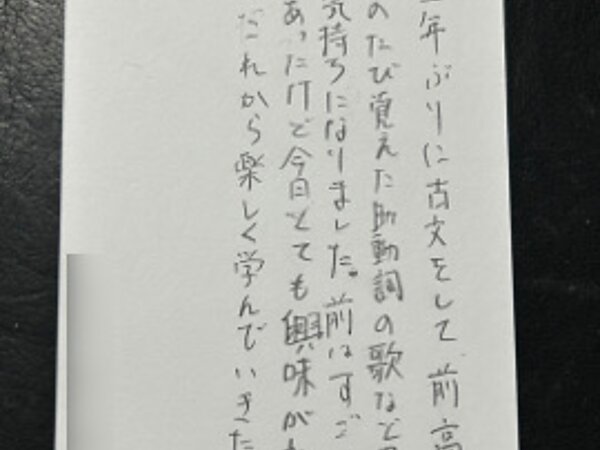 年ぶりに古文をして、前高
のたび覚えた助動詞の歌など
気持ちになりました。前はすご
あったけど今日とても興味が
だれから楽しく学んでいきた